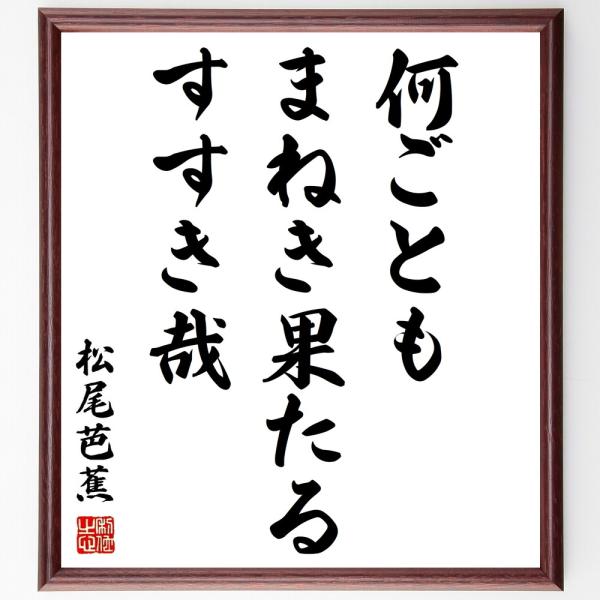 何ごとも
まねき果たる
すすき哉
松尾芭蕉